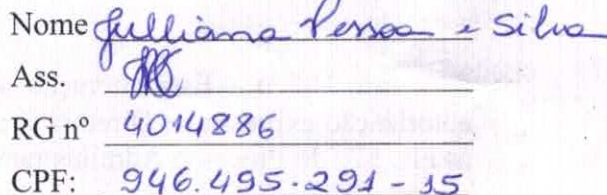 Nome Julliana Pessoa e Silva
Ass.
RG nº 4014886
CPF: 946.495.291-15